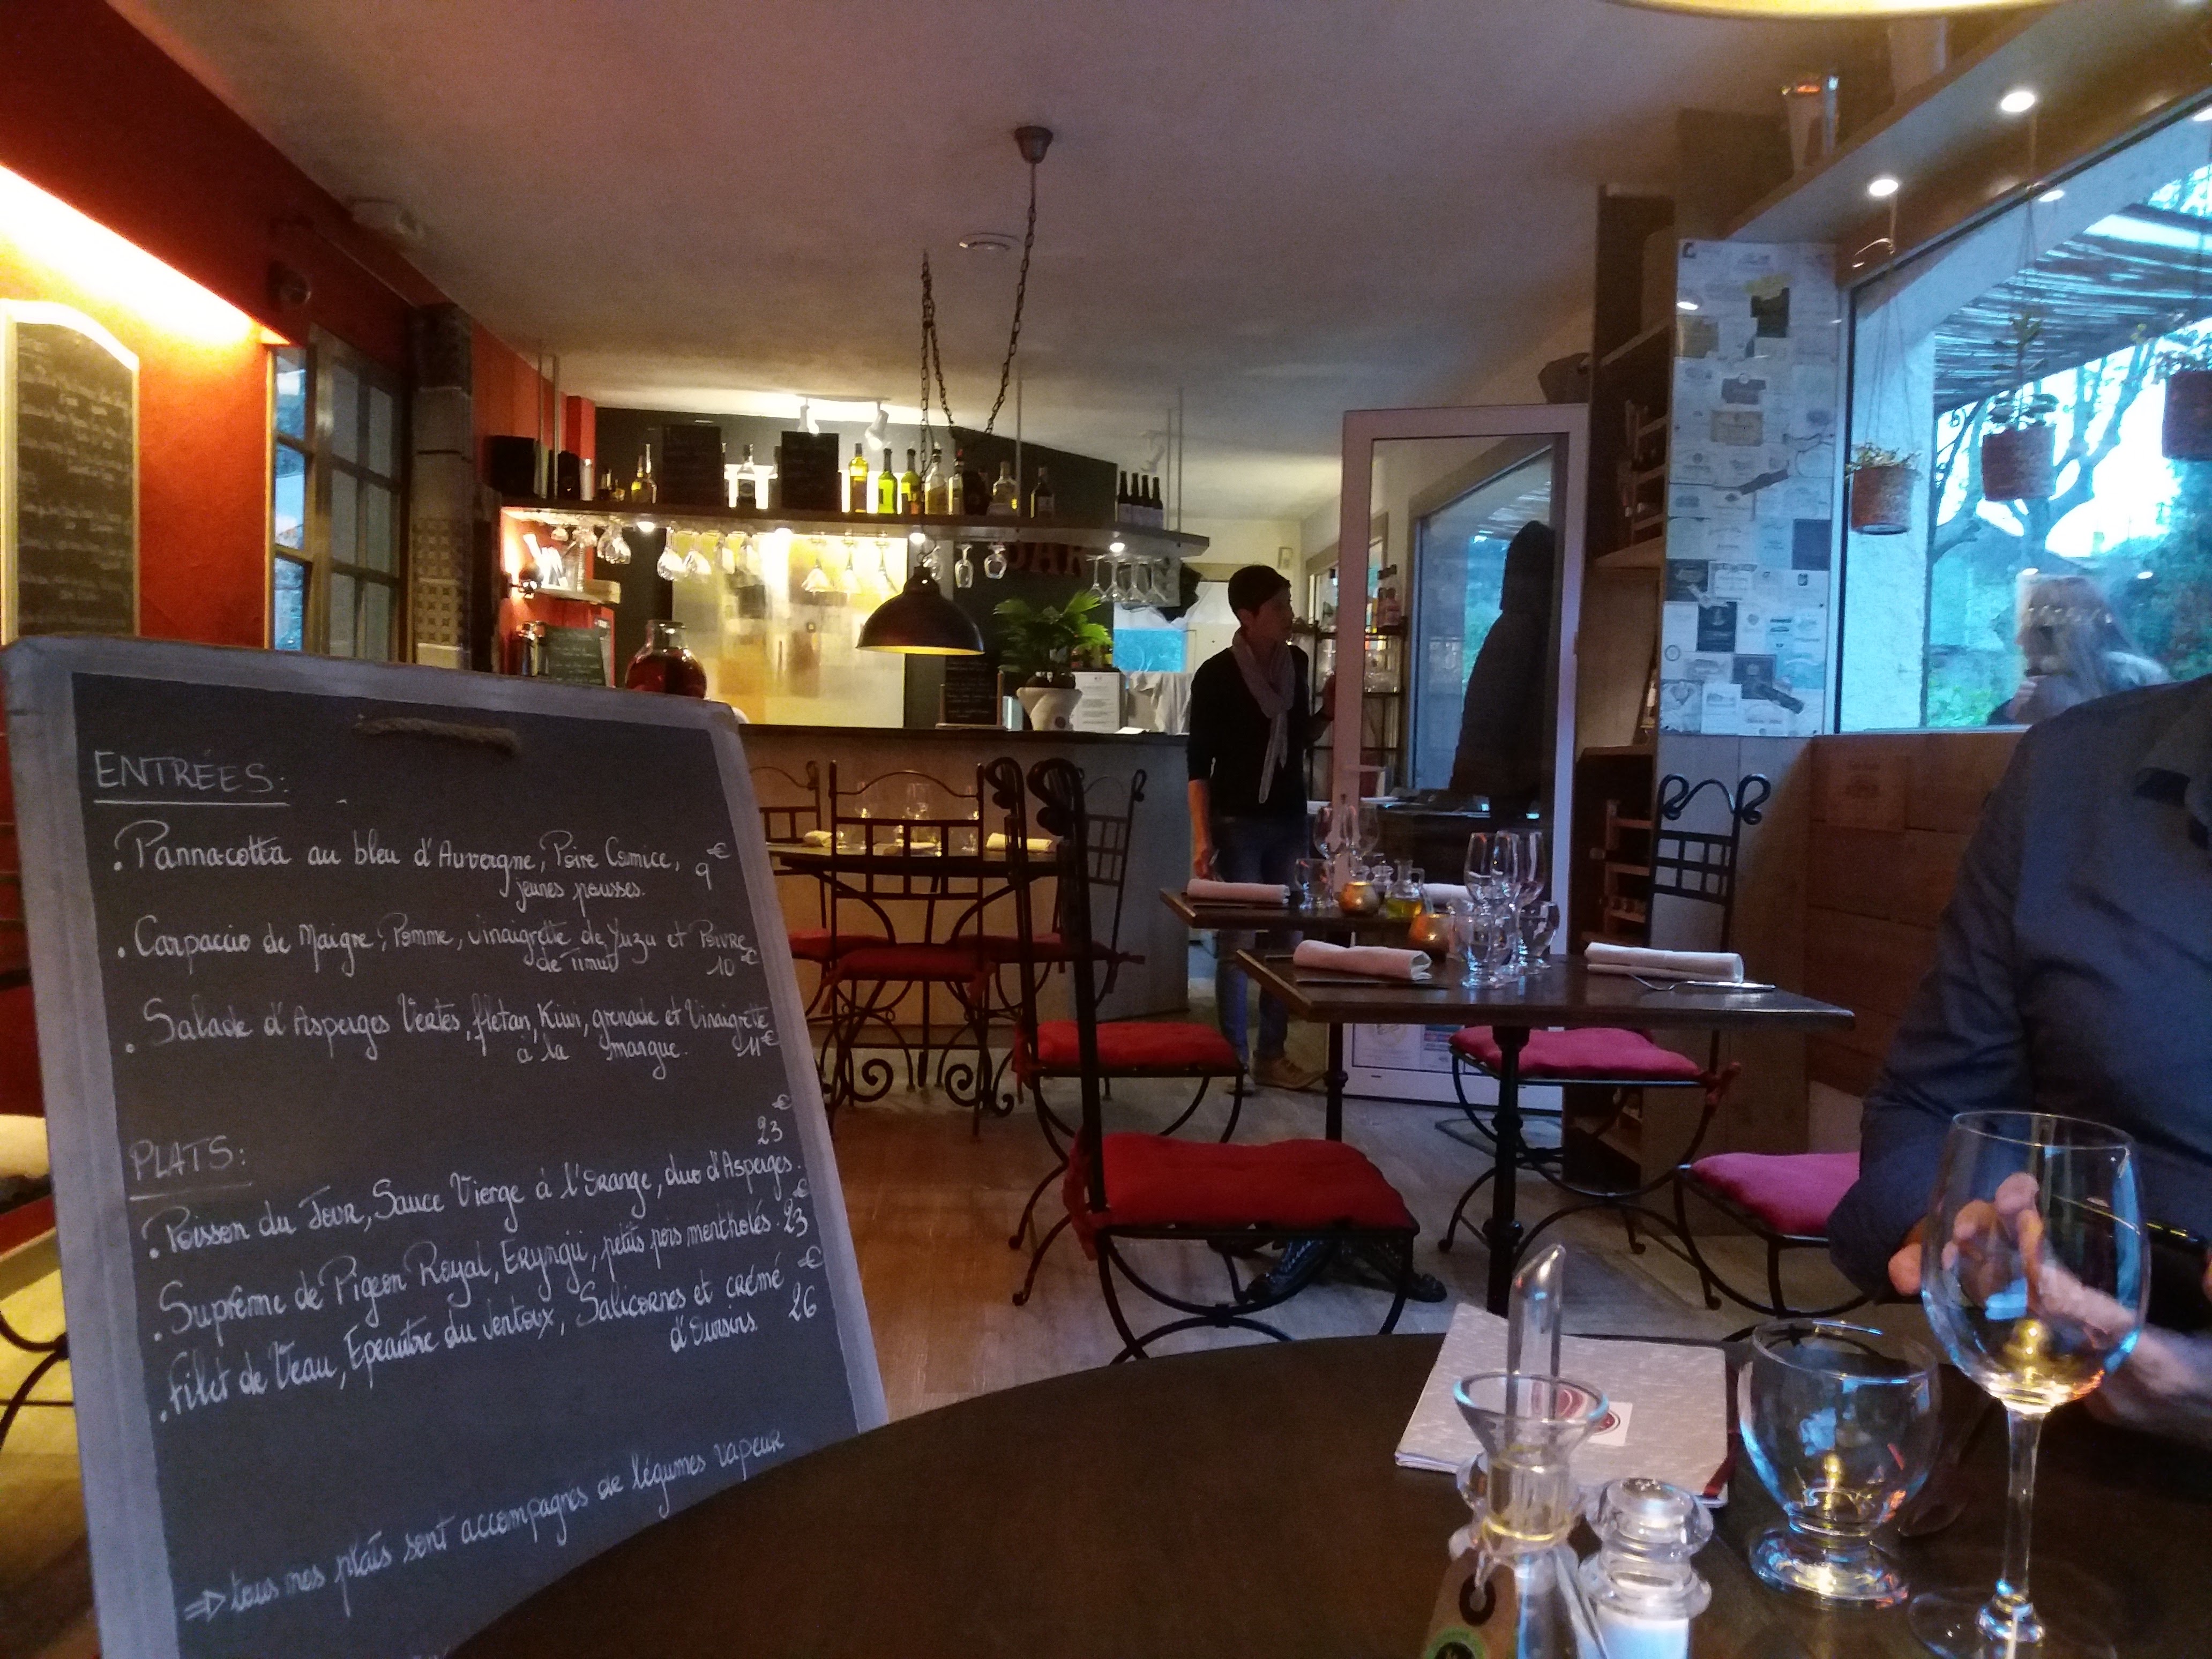 ENTRÉES:
. Pannacotta au bleu d'Auvergne, Poire Comice, 9€
jeunes pousses.
. Carpaccio de Maigre, Pomme, Vinaigrette de Yuzu et Poivre
de Timut 10€
. Salade d'Asperges Vertes, flétan, Kiwi, grenade et Vinaigrette
à la mangue. 11€
PLATS:
. Poisson du Jour, Sauce Vierge à l'Orange, duo d'Asperges. 23€
. Suprême de Pigeon Royal, Eryngii, petits pois mentholés. 23€
. Filet de Veau, Epeautre du Ventoux, Salicornes et crémé
d'Oursins. 26€
=> tous nos plats sont accompagnés de légumes vapeur
BAR